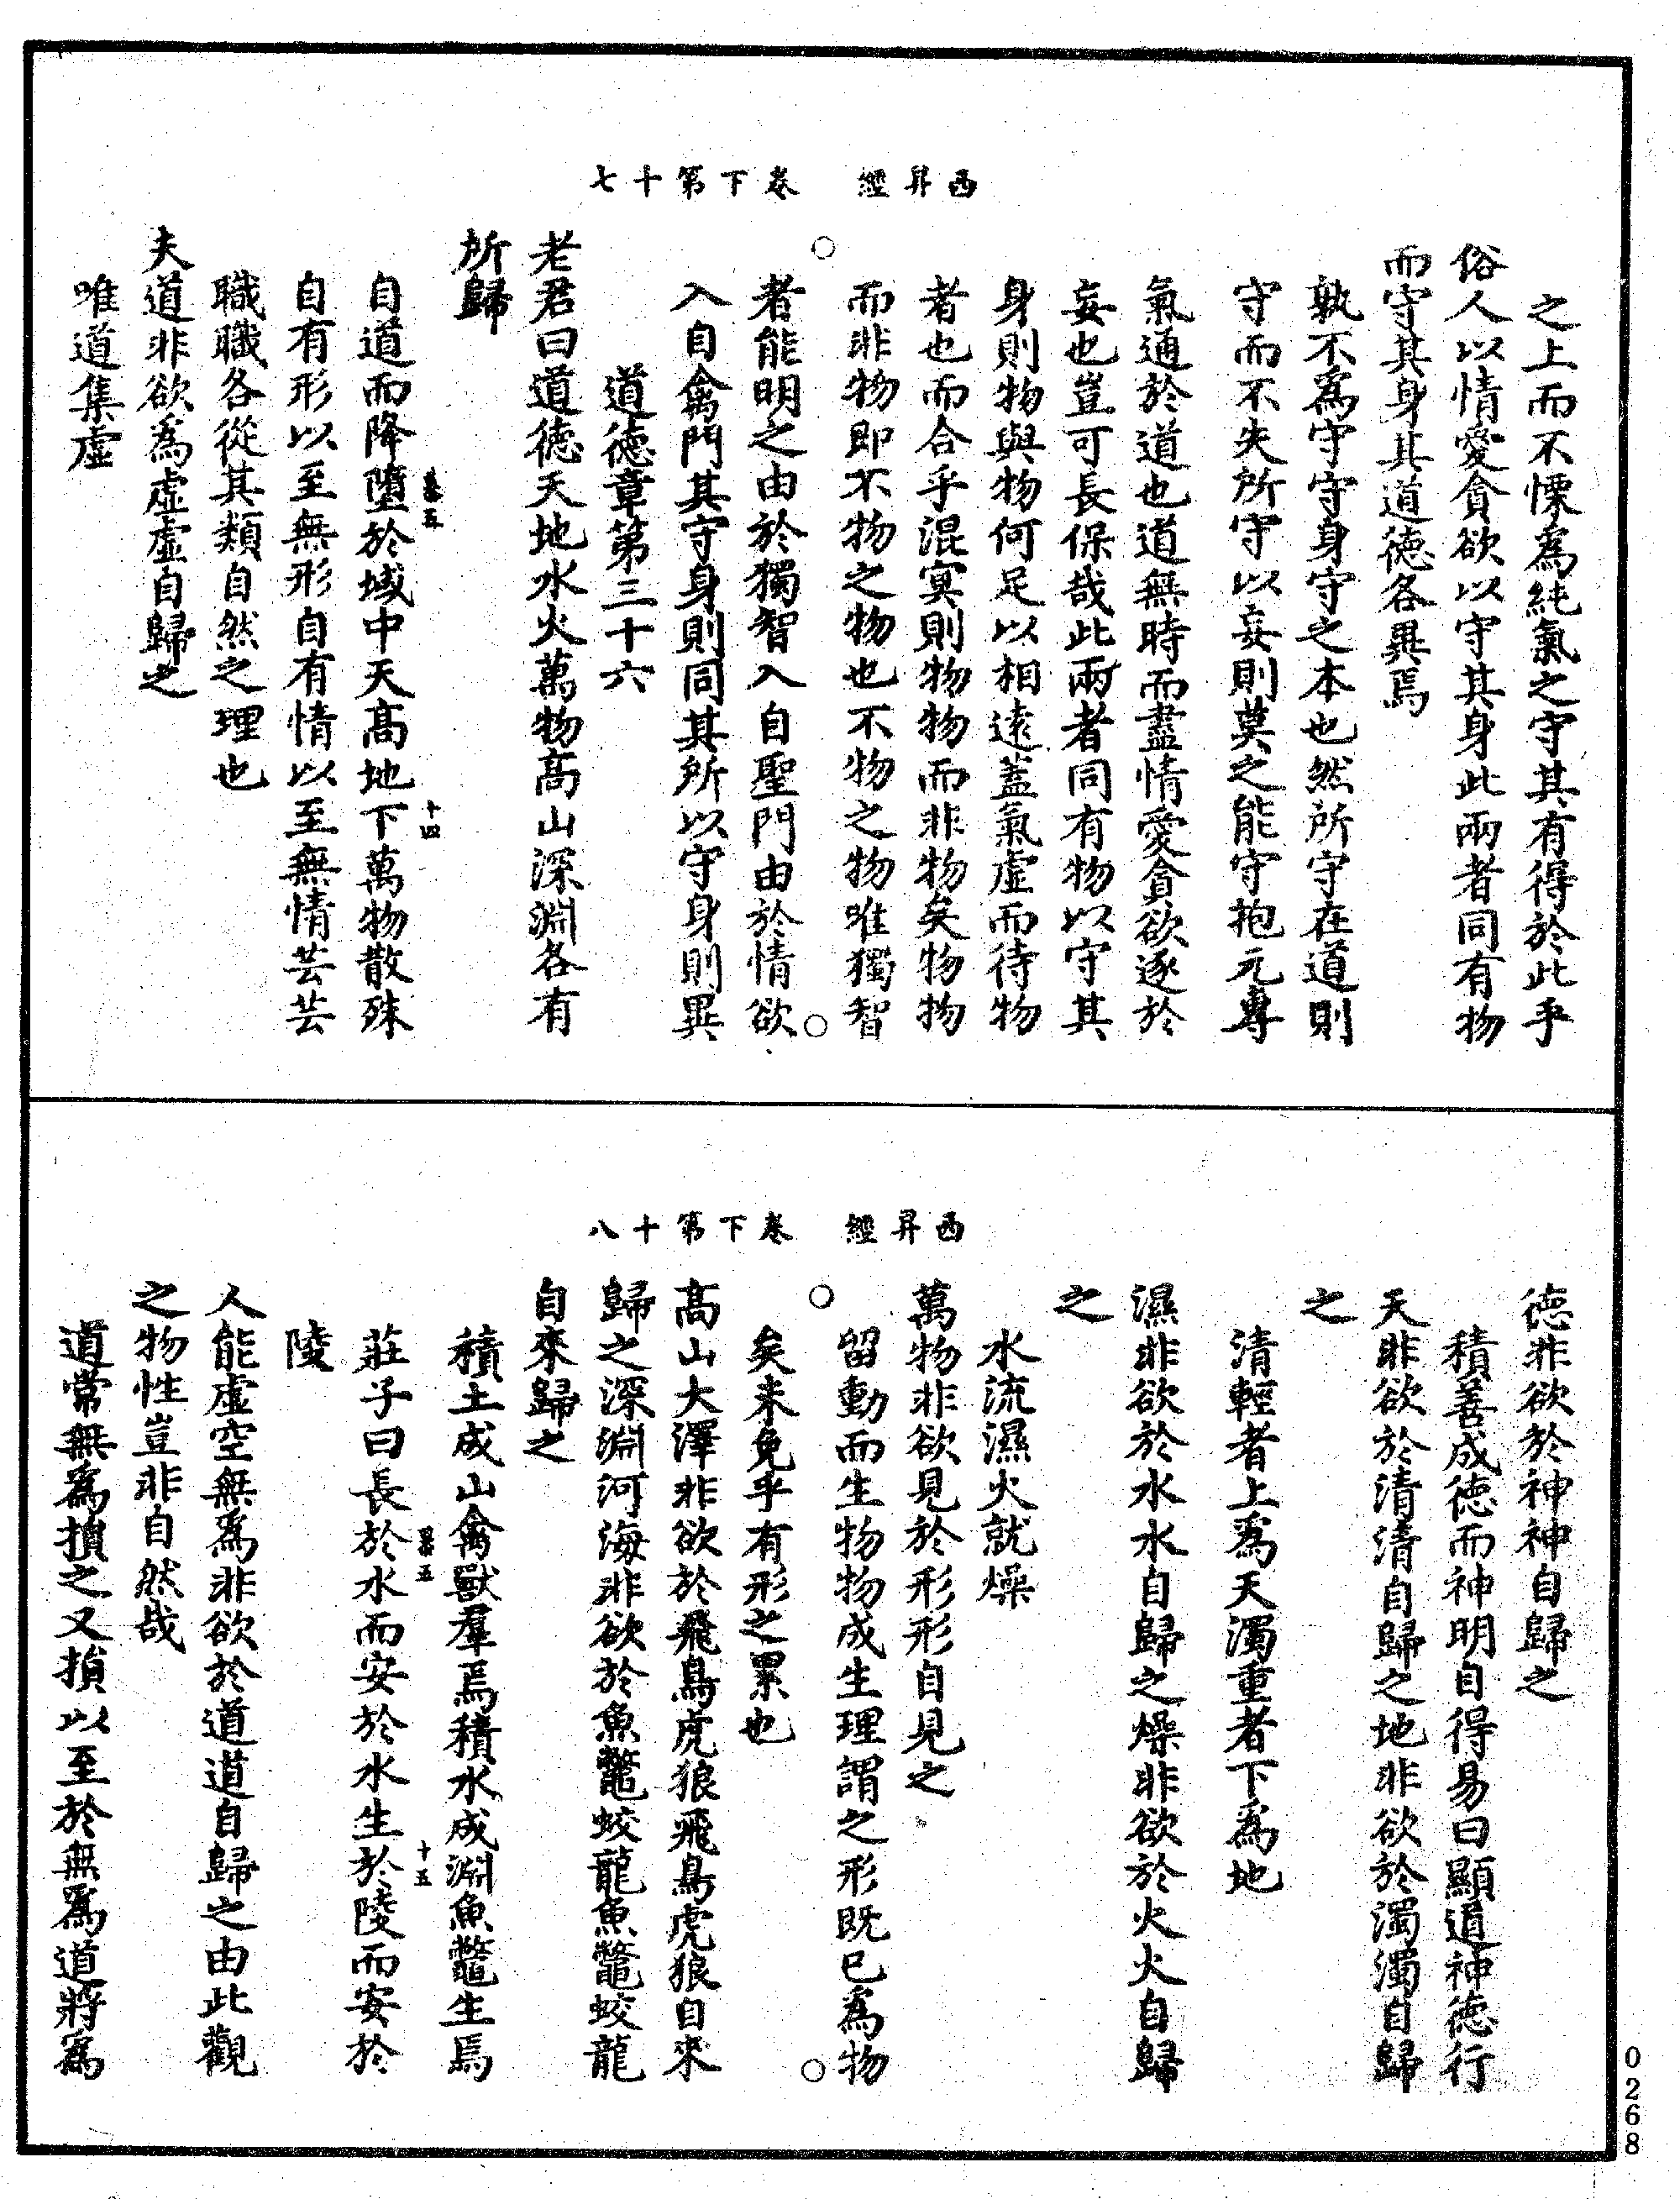 西昇經　卷下第十七
之上而不慄爲純氣之守其有得於此乎
俗人以情愛貪欲以守其身此兩者同有物
而守其身其道德各異焉
孰不爲守守身守之本也然所守在道則
守而不失所守以妄則莫之能守抱元專
氣通於道也道無時而盡情愛貪欲逐於
妄也豈可長保哉此兩者同有物以守其
身則物與物何足以相遠蓋氣虛而待物
者也而合乎混冥則物物而非物矣物物
而非物即不物之物也不物之物唯獨智
者能明之由於獨智入自聖門由於情欲
入自禽門其守身則同其所以守身則異
道德章第三十六
老君曰道德天地水火萬物高山深淵各有
所歸
慕五
十四
自道而降墮於域中天高地下萬物散殊
自有形以至無形自有情以至無情芸芸
職職各從其類自然之理也
夫道非欲爲虛虛自歸之
唯道集虛
西昇經　卷下第十八
德非欲於神神自歸之
積善成德而神明自得易曰顯道神德行
天非欲於清清自歸之地非欲於濁濁自歸
之
清輕者上爲天濁重者下爲地
濕非欲於水水自歸之燥非欲於火火自歸
之
水流濕火就燥
萬物非欲見於形形自見之
留動而生物物成生理謂之形既已爲物
矣未免乎有形之累也
高山大澤非欲於飛鳥虎狼飛鳥虎狼自來
歸之深淵河海非欲於魚鼈蛟龍魚鼈蛟龍
自來歸之
積土成山禽獸羣焉積水成淵魚鼈生焉
慕五
十五
莊子曰長於水而安於水生於陵而安於
陵
人能虛空無爲非欲於道道自歸之由此觀
之物性豈非自然哉
道常無爲損之又損以至於無爲道將爲
0268